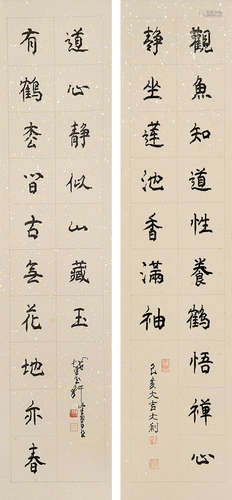 觀魚知道性養鶴悟禪心
靜坐蓮池香滿袖
己亥大吉大利
道心靜似山藏玉
有鶴枩皆古無花地亦春